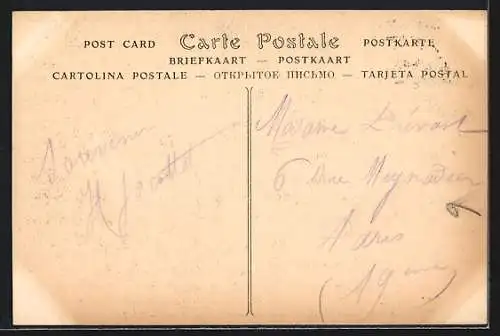 POST CARD Carte Postale POSTKARTE
BRIEFKAART — POSTKAART
CARTOLINA POSTALE — ОТКРЫТОЕ ПИСЬМО — TARJETA POSTAL
Souvenir
H
Madame
6 Rue Meynadier
Paris
(19eme)